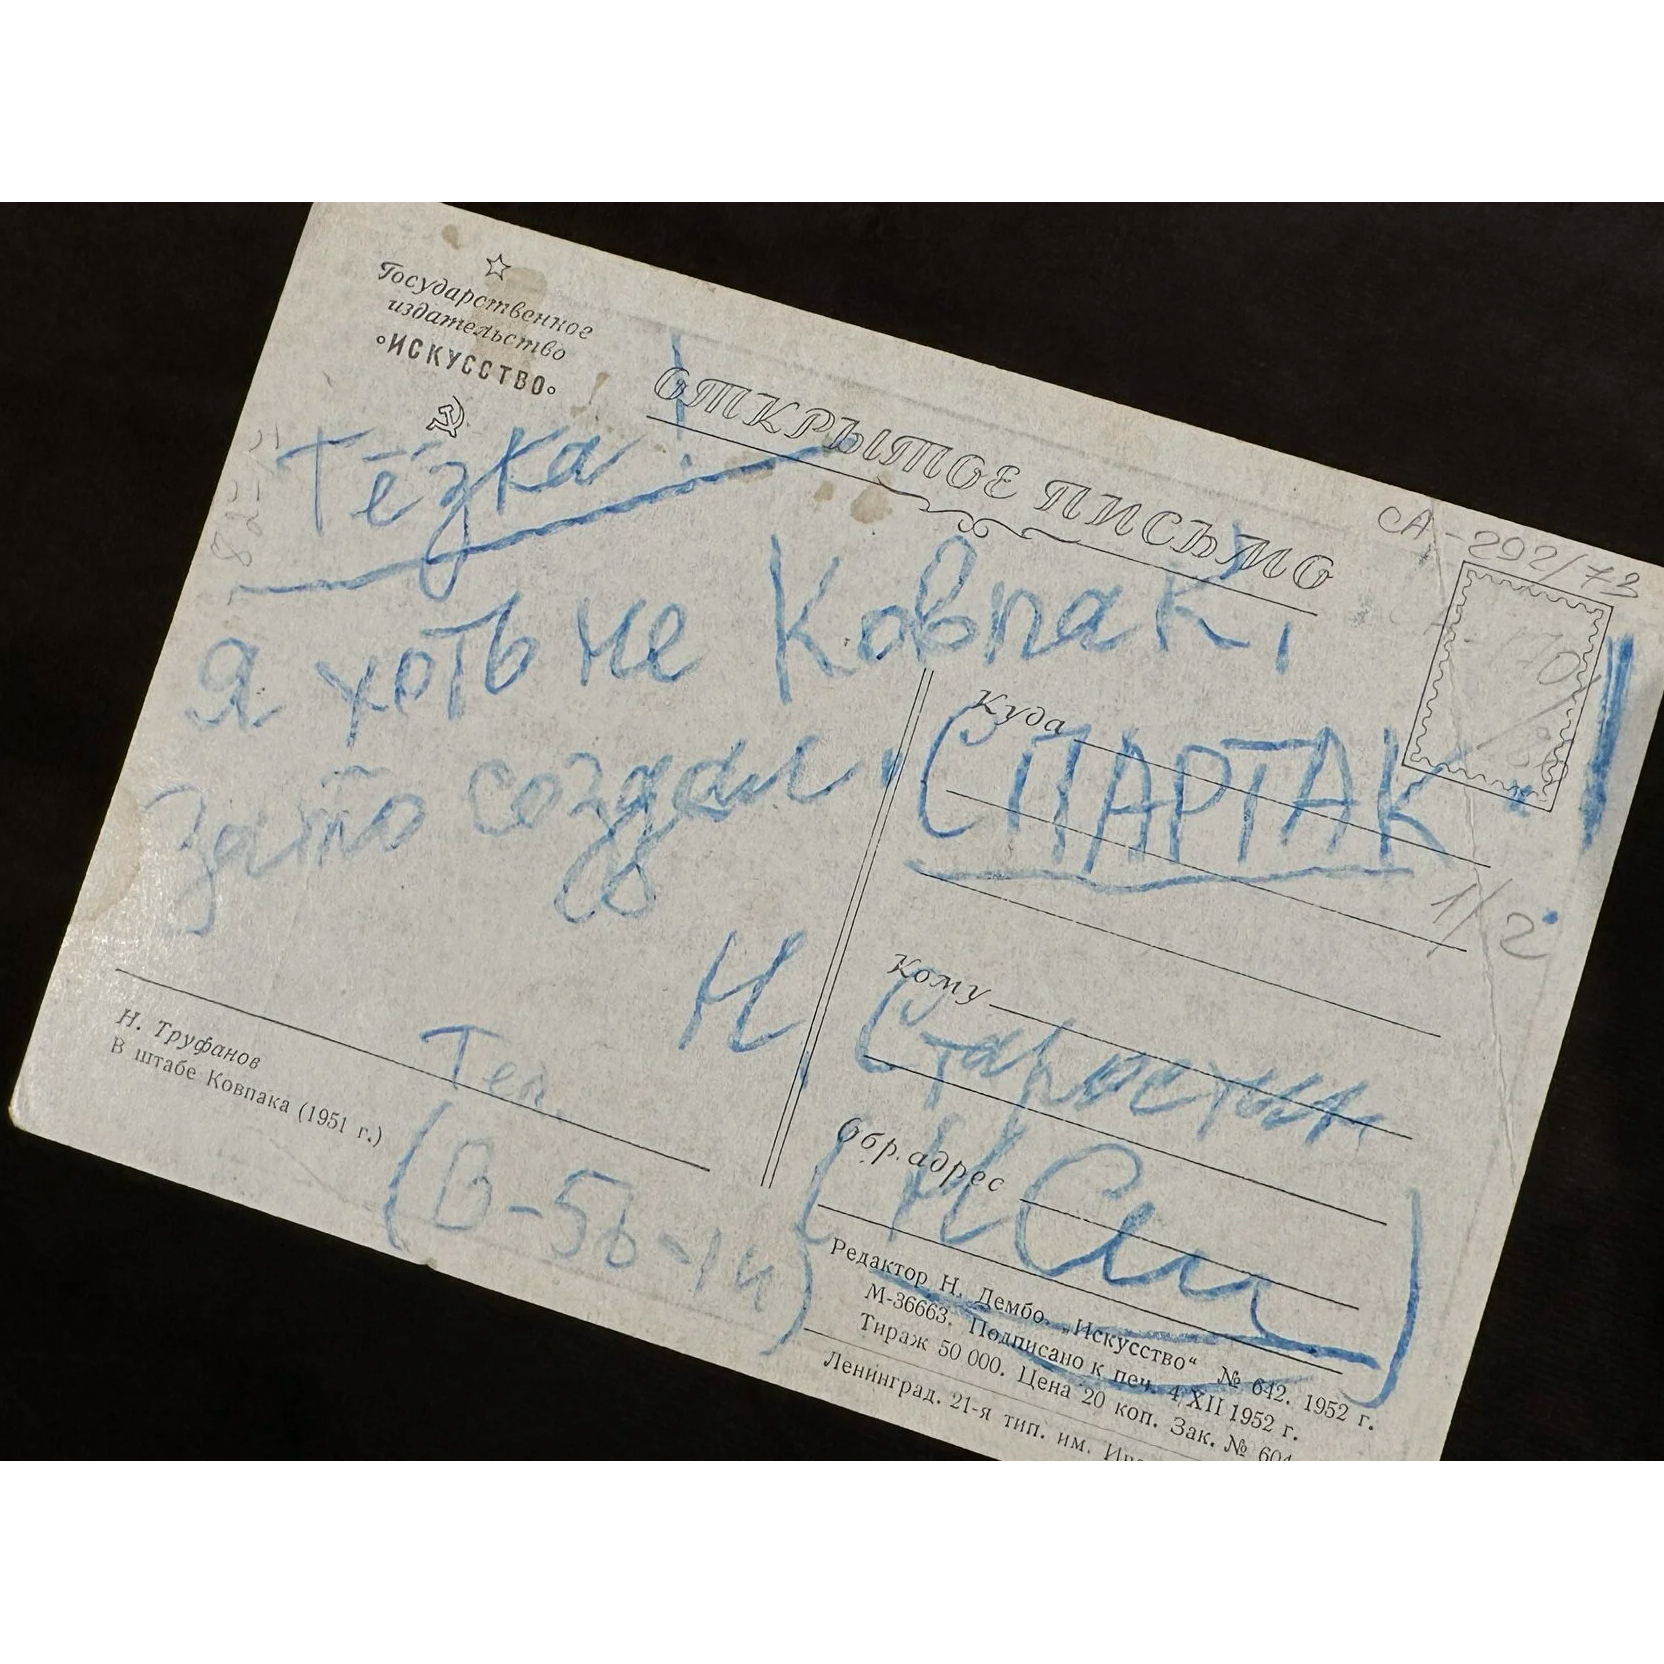 Государственное
издательство
«ИСКУССТВО»
ОТКРЫТОЕ ПИСЬМО
СА-292/73
Тёзка!
Я хоть не Ковпак,
Зато создал
Куда
СПАРТАК
1/2
Кому
Н. Старостин
Обр. адрес
Н. Труфанов
В штабе Ковпака (1951 г.)
Тел.
Редактор Н. Дембо. „Искусство“ № 642. 1952 г.
М-36663. Подписано к печ. 4/XII 1952 г.
Тираж 50 000. Цена 20 коп. Зак. № 604
Ленинград. 21-я тип. им.